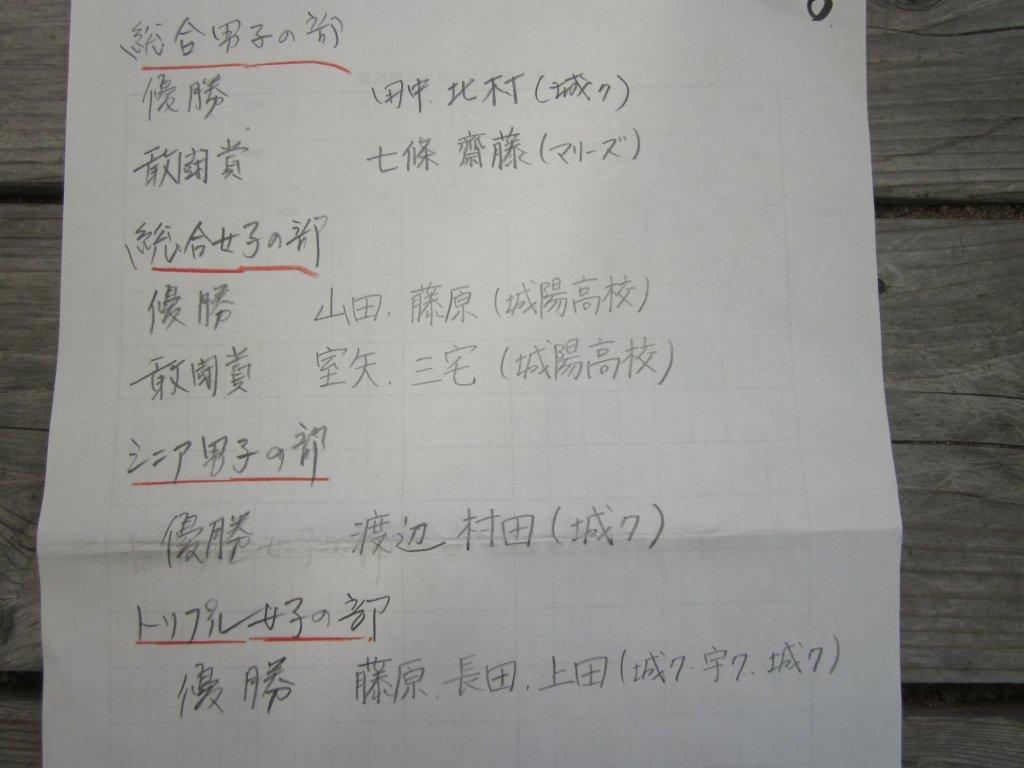 総合男子の部
優勝 田中.北村(城ク)
敢闘賞 七條 齋藤(マリーズ)
総合女子の部
優勝 山田.藤原(城陽高校)
敢闘賞 室矢.三宅(城陽高校)
シニア男子の部
優勝 渡辺 村田(城ク)
トリプル女子の部
優勝 藤原.長田.上田(城ク.宇ク.城ク)